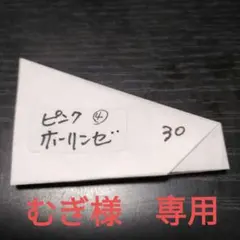 ピンク ④
ホーリンゼ 30
むぎ様 専用